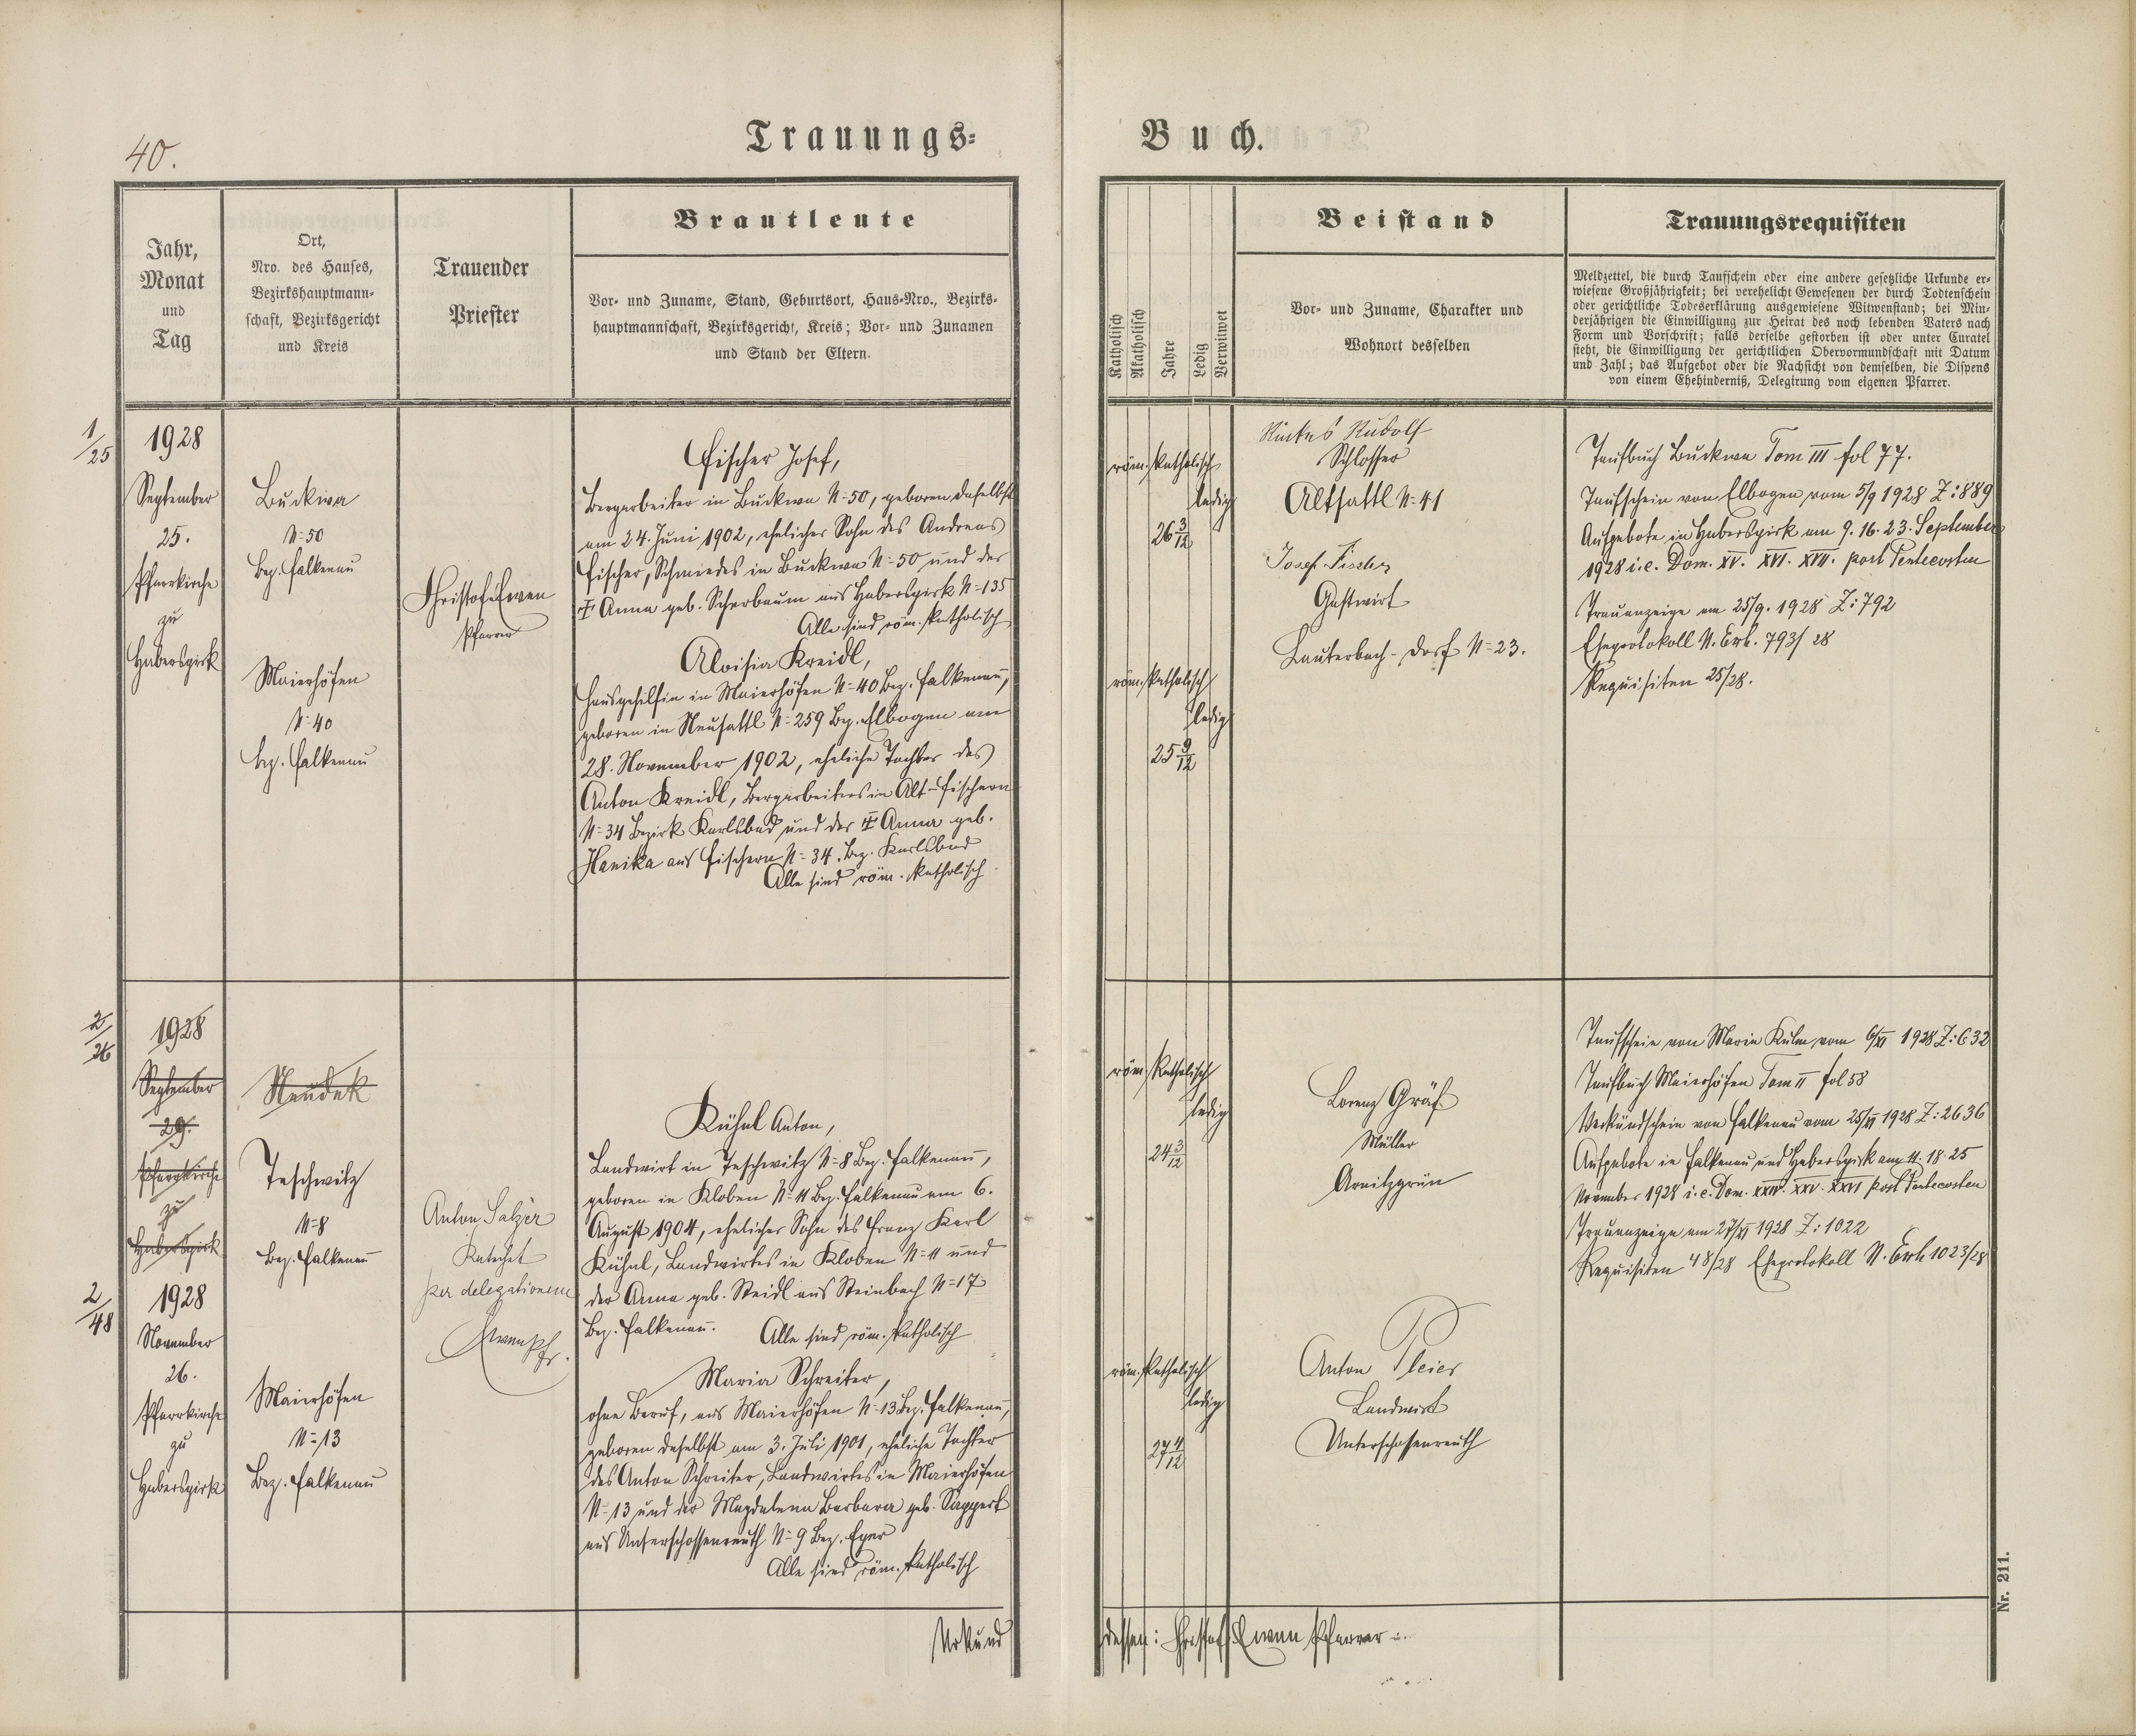 40.
Trauungs-
Buch.
Jahr,
Monat
und
Tag
Ort,
Nro. des Hauses,
Bezirkshauptmann-
schaft, Bezirksgericht
und Kreis
Trauender
Priester
Brautleute
Vor- und Zuname, Stand, Geburtsort, Haus-Nro., Bezirks-
hauptmannschaft, Bezirksgericht, Kreis; Vor- und Zunamen
und Stand der Eltern.
Katholisch
Akatholisch
Jahre
Ledig
Verwitwet
Beistand
Vor- und Zuname, Charakter und
Wohnort desselben
Trauungsrequisiten
Meldzettel, die durch Taufschein oder eine andere gesetzliche Urkunde er-
wiesene Großjährigkeit; bei verehelicht Gewesenen der durch Todtenschein
oder gerichtliche Todeserklärung ausgewiesene Witwenstand; bei Min-
derjährigen die Einwilligung zur Heirat des noch lebenden Vaters nach
Form und Vorschrift; falls derselbe gestorben ist oder unter Curatel
steht, die Einwilligung der gerichtlichen Obervormundschaft mit Datum
und Zahl; das Aufgebot oder die Nachsicht von demselben, die Dispens
von einem Ehehinderniß, Delegirung vom eigenen Pfarrer.
1/25
1928
September
25.
Pfarrkirche
zu
Haberspirk
Buckwa
N=50
Bez. Falkenau
Maierhöfen
N=40
bez. Falkenau
Christof Ewen
Pfarrer
Fischer Josef,
Bergarbeiter in Buckwa N=50, geboren daselbst
am 24. Juni 1902, ehelicher Sohn des Andreas
Fischer, Schmiedes in Buckwa N=50 und der
‡ Anna geb. Scherbaum aus Haberspirk N=135
Alle sind röm. katholisch
Aloisia Kreidl,
Hausgehilfin in Maierhöfen N=40 Bez. Falkenau,
geboren in Neusattl N=259 Bez. Elbogen am
28. November 1902, eheliche Tochter des
Anton Kreidl, Bergarbeiters in Alt-Fischern
N=34 Bezirk Karlsbad und der ‡ Anna geb.
Hanika aus Fischern N=34. Bez. Karlsbad
Alle sind röm. katholisch
röm. katholisch
ledig
26 3/12
röm. katholisch
ledig
25 9/12
Rudolf
Schlosser
Altsattl N=41
Josef Fischer
Gastwirt
Lauterbach-Dorf N=23.
Taufbuch Buckwa Tom III fol 77.
Taufschein von Elbogen vom 5/9 1928 Z:889
Aufgebote in Haberspirk am 9. 16. 23. September
1928 i.e. Dom. XV. XVI. XVII. post Pentecosten
Trauanzeige am 25/9. 1928 Z:792
Eheprotokoll N. Erh. 793/28
Requisiten 25/28.
2/26
1928
September
29.
Pfarrkirche
zu
Haberspirk
2/48
1928
November
26.
Pfarrkirche
zu
Haberspirk
Neudek
Teschwitz
N=8
Bez. Falkenau
Maierhöfen
N=13
Bez. Falkenau
Anton Salzer
Katechet
per delegationem
Ewen Pfr.
Kühnl Anton,
Landwirt in Teschwitz N=8 Bez. Falkenau,
geboren in Kloben N=11 Bez. Falkenau am 6.
August 1904, ehelicher Sohn des Franz Karl
Kühnl, Landwirtes in Kloben N=11 und
der Anna geb. Steidl aus Steinbach N=17
Bez. Falkenau. Alle sind röm. katholisch
Maria Schreiter,
ohne Beruf, aus Maierhöfen N=13 Bez. Falkenau,
geboren daselbst am 3. Juli 1901, eheliche Tochter
des Anton Schreiter, Landwirtes in Maierhöfen
N=13 und der Magdalena Barbara geb.
aus Unterschossenreuth N=9 Bez. Eger
Alle sind röm. katholisch
röm. katholisch
ledig
24 3/12
röm. katholisch
ledig
27 4/12
Lorenz Gräf
Müller
Arnitzgrün
Anton Pleier
Landwirt
Unterschossenreuth
Taufschein von Maria Kulm vom 6/XI 1928 Z:632
Taufbuch Maierhöfen Tom II fol 58
Verkündschein von Falkenau vom 25/XI 1928 Z:2636
Aufgebote in Falkenau und Haberspirk am 11. 18. 25
November 1928 i.e. Dom. XXIV. XXV. XXVI post Pentecosten
Trauanzeige am 27/XI 1928 Z:1022
Requisiten 48/28 Eheprotokoll N. Erh 1023/28
Urkund dessen: Christof Ewen Pfarrer
Nr. 211.